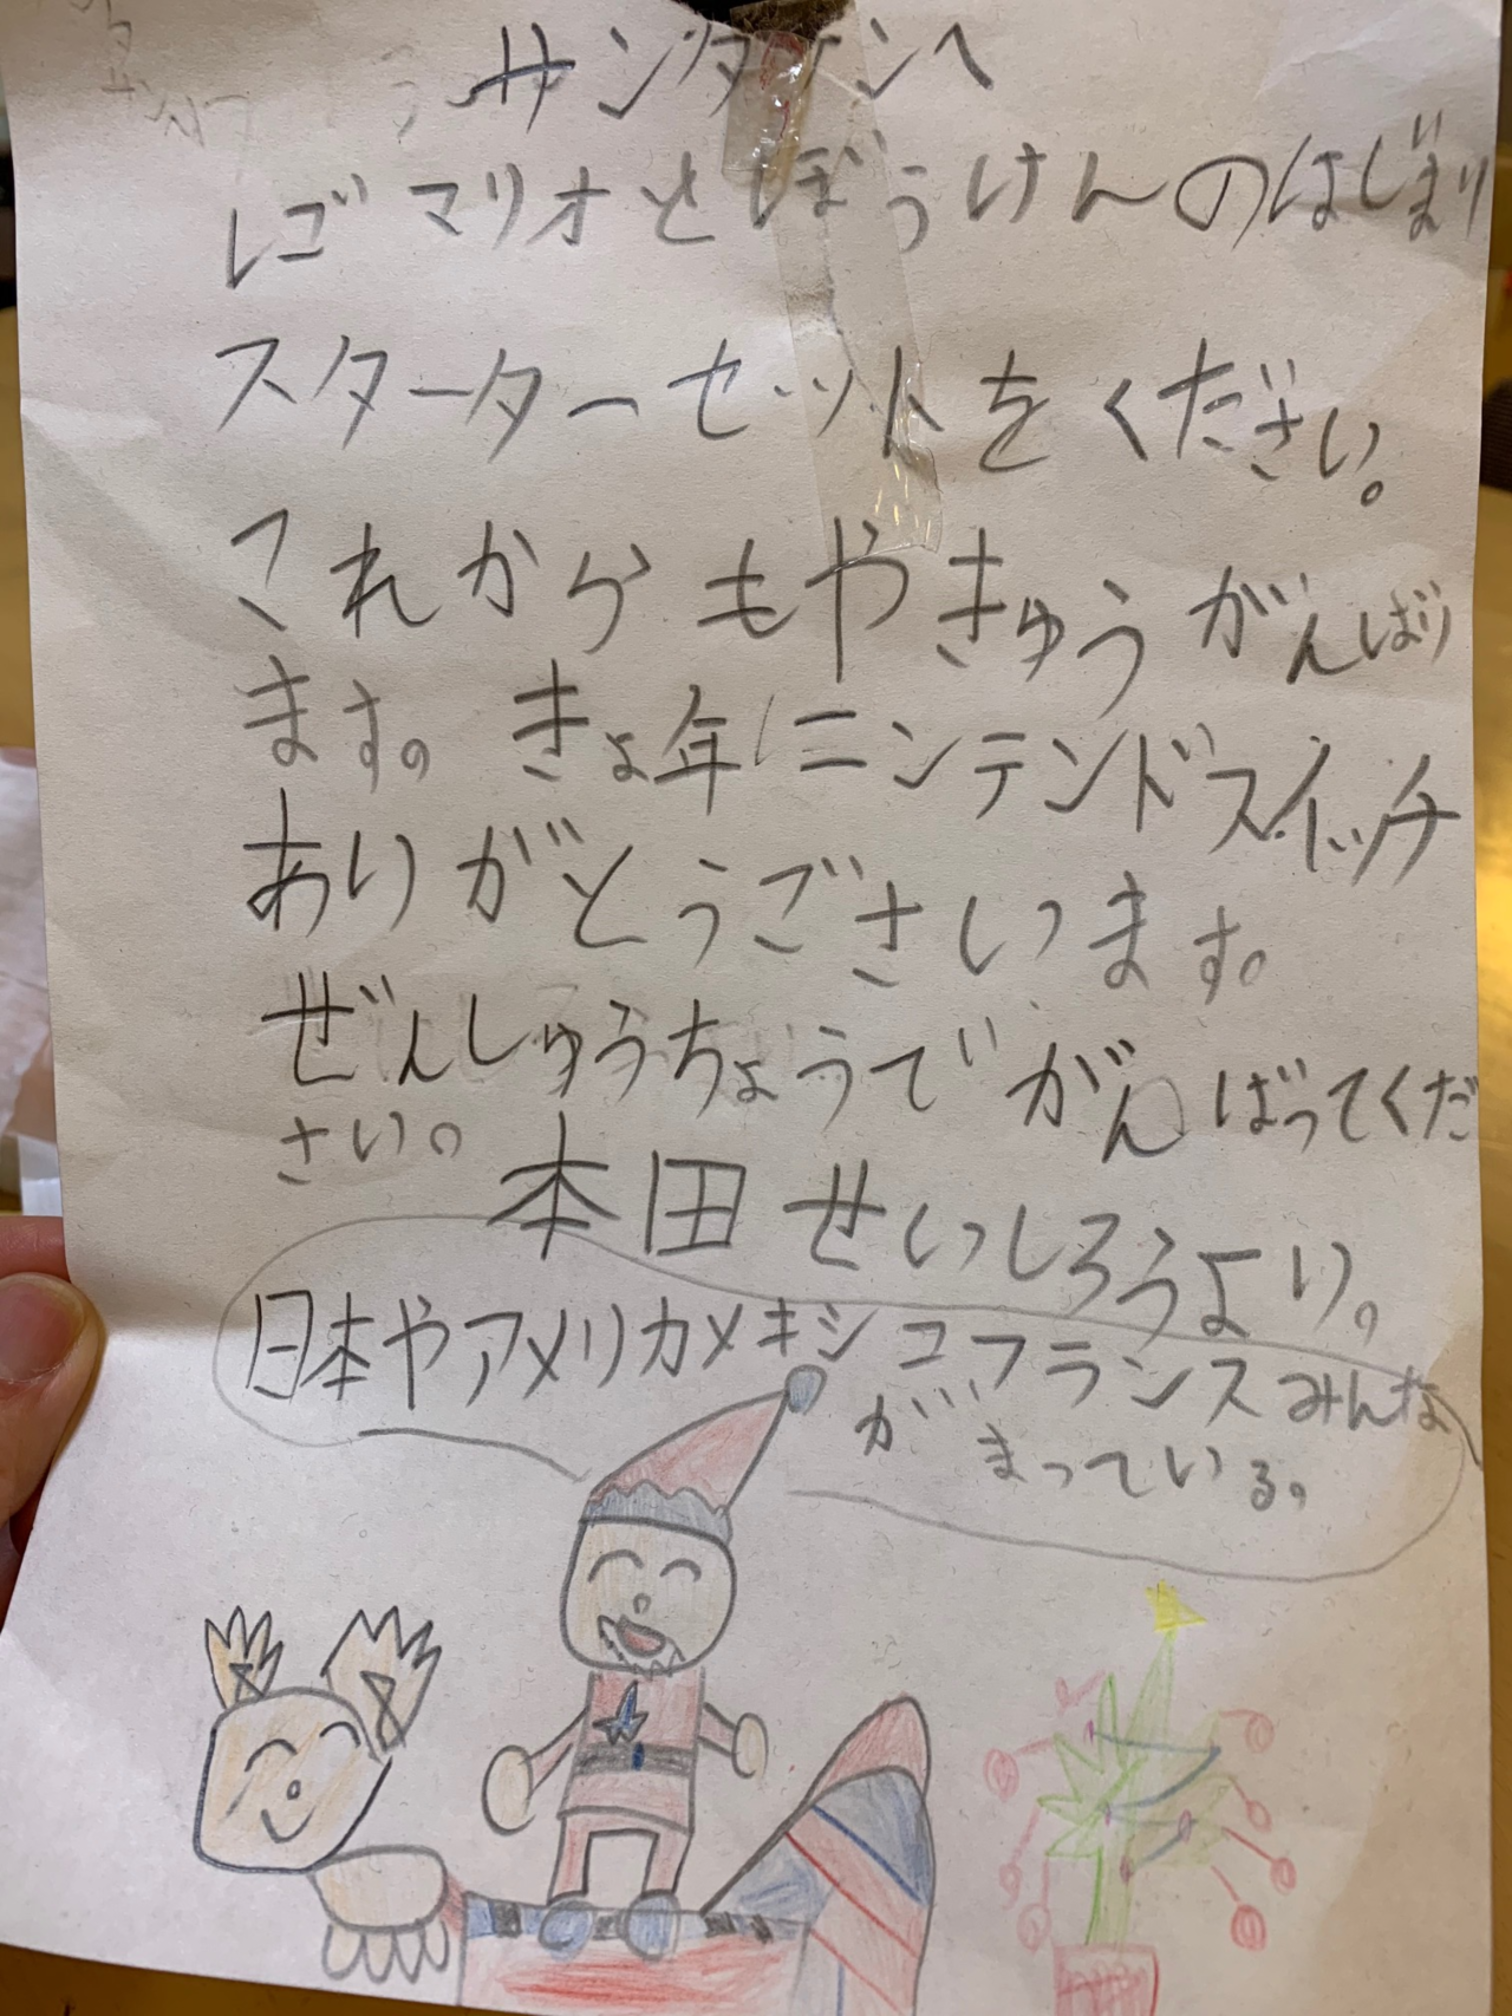 サンタサンへ
レゴマリオとぼうけんのはじまり
スターターセットをください。
これからもやきゅうがんばり
ます。きょ年ニンテンドスイッチ
ありがとうごさいます。
ぜんしゅうちょうでがんばってくだ
さい。
本田せいしろうより。
日本やアメリカメキシコフランスみんな
がまっている。